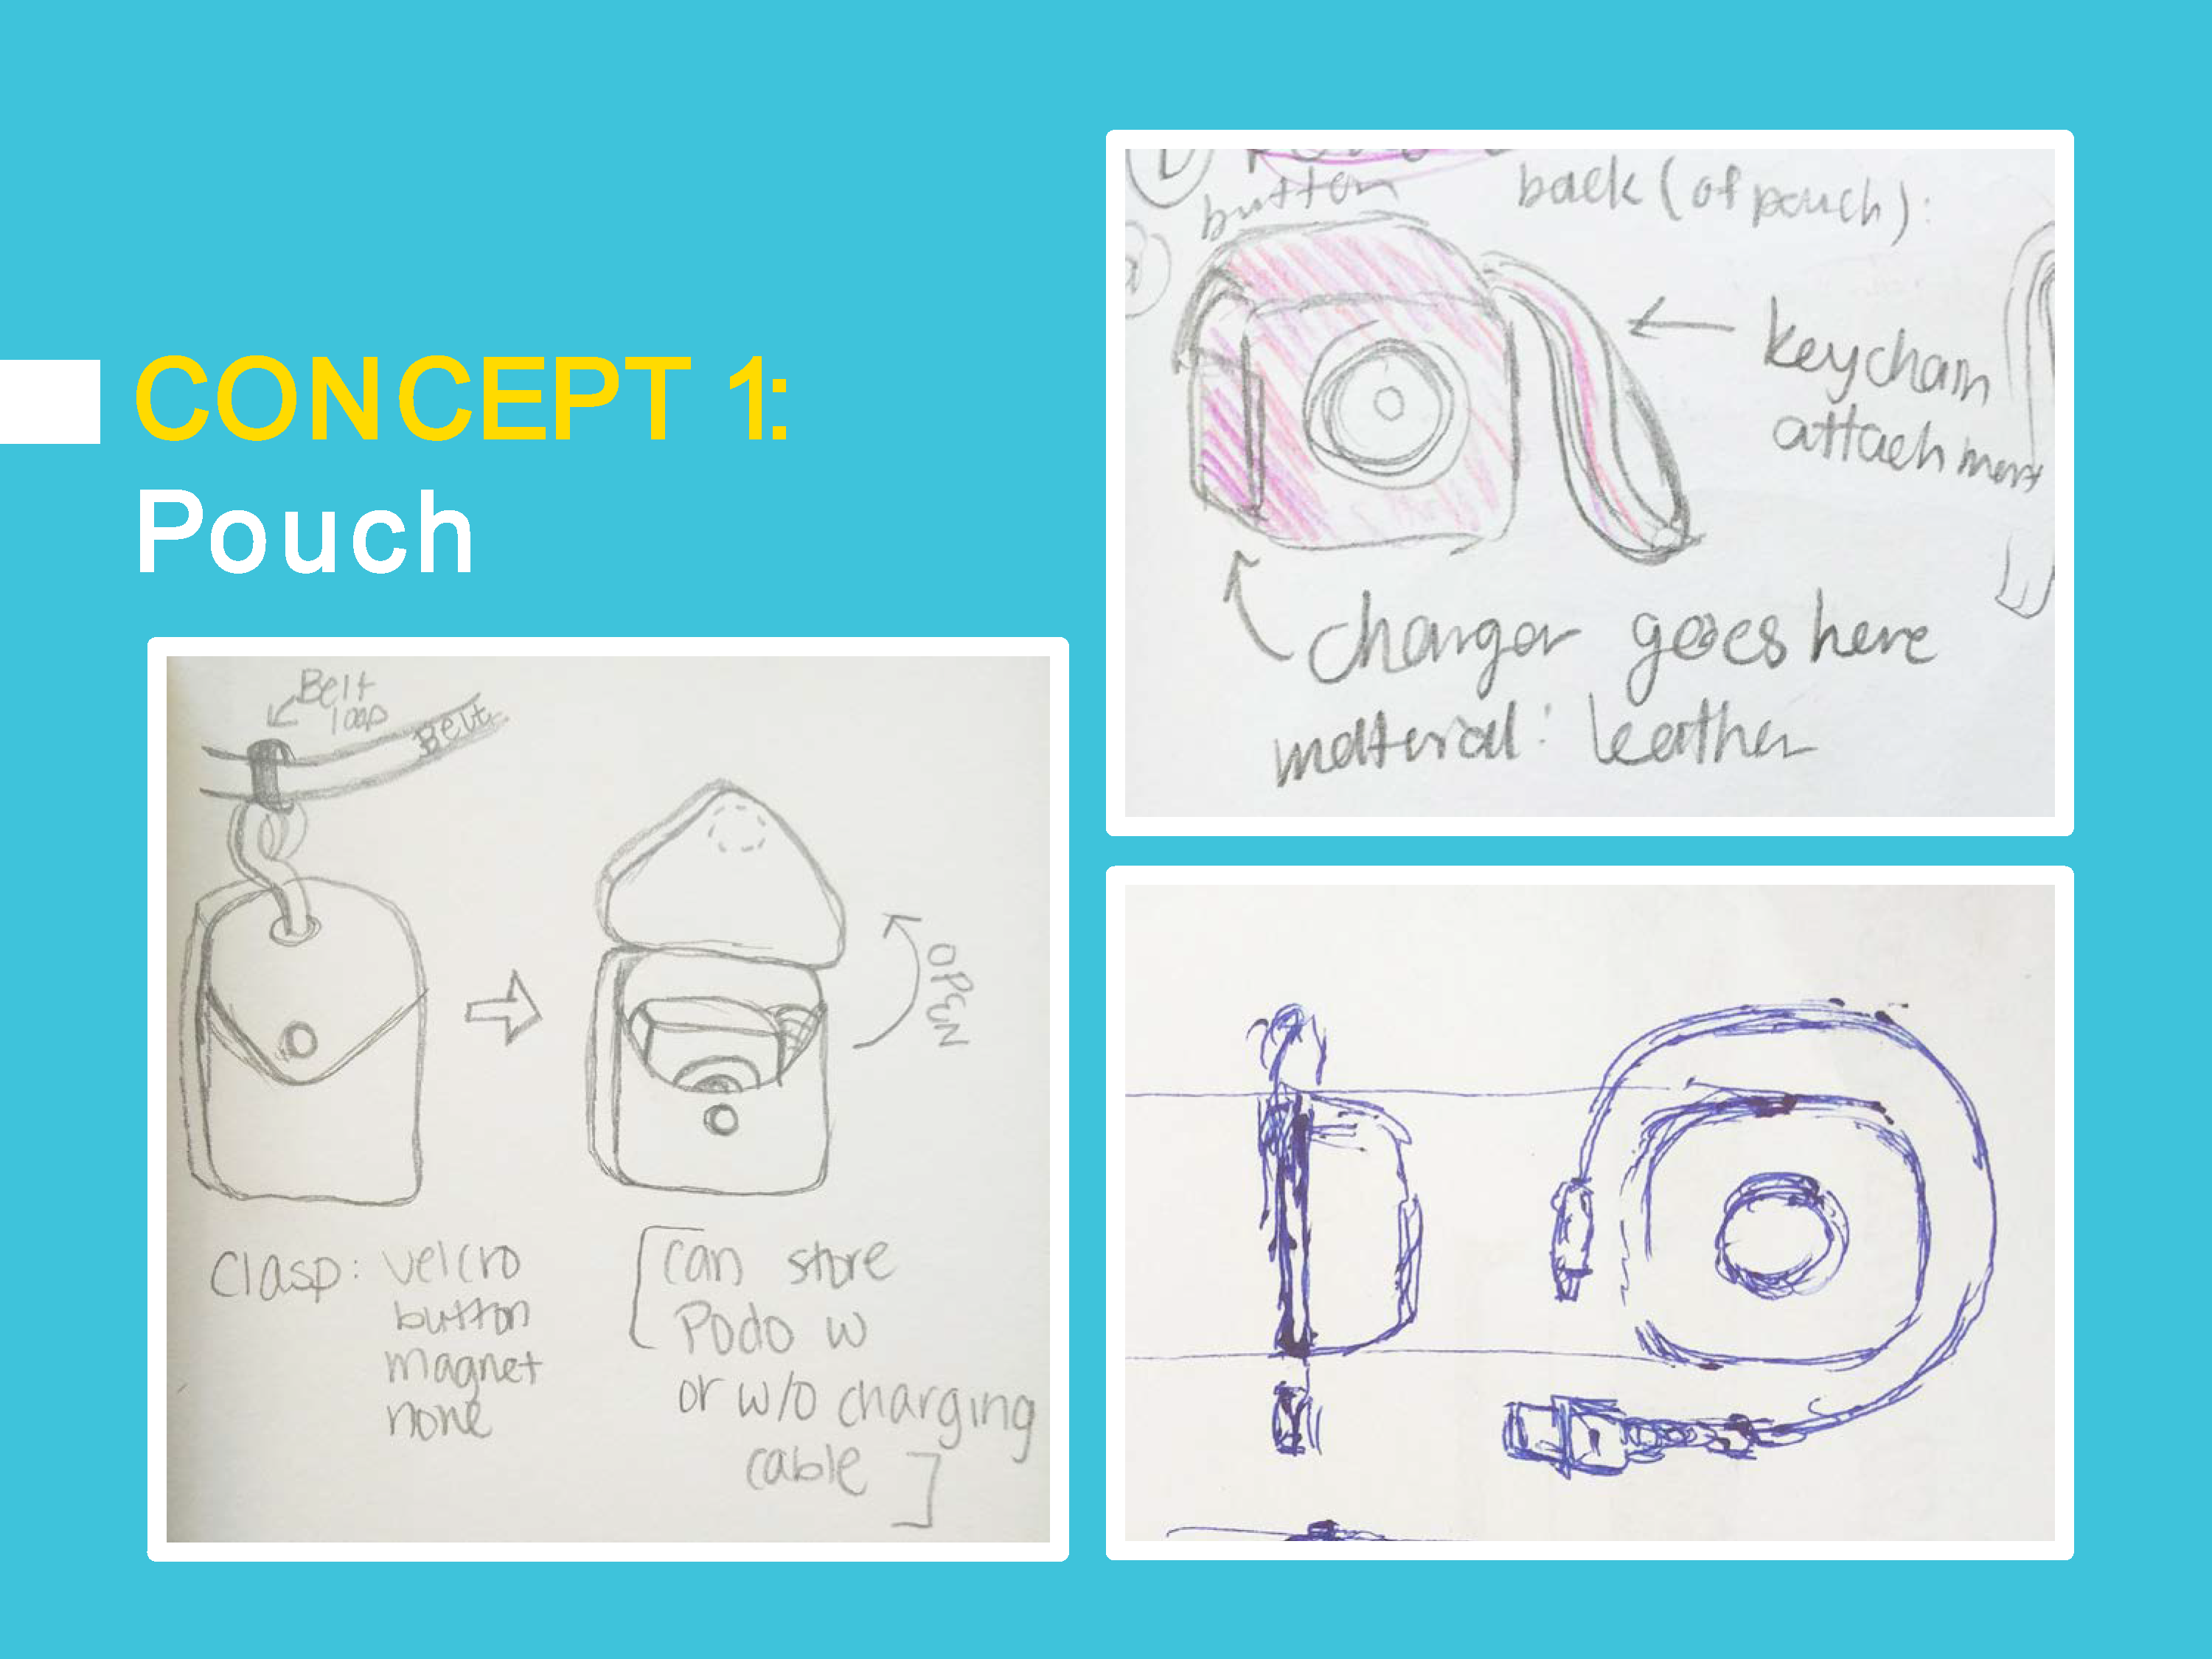 CONCEPT 1:
Pouch
Belt
loop
Belt
OPEN
Clasp: velcro
button
magnet
none
[can store
Podo w
or w/o charging
cable]
button
back (of pouch):
keychain
attachment
charger goes here
material: leather